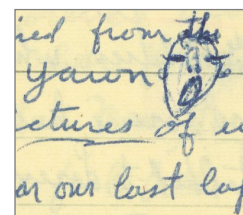 ied from the
yawn
ctures of
our last